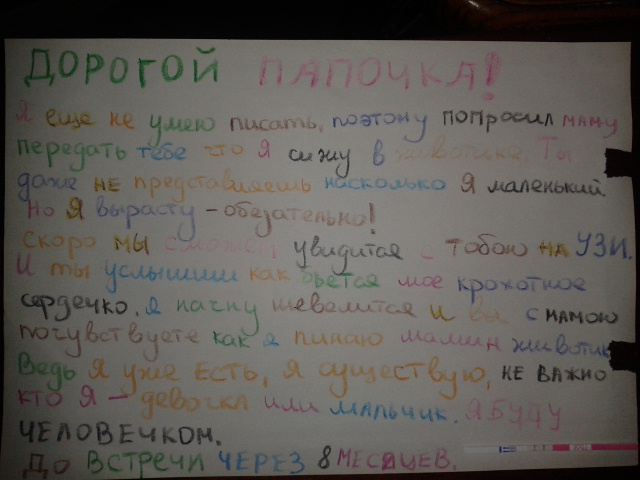 ДОРОГОЙ ПАПОЧКА!
Я еще не умею писать, поэтому попросил маму
передать тебе что Я сижу в животике. Ты
даже не представляешь насколько Я маленький
Но Я вырасту - обезательно!
Скоро мы сможем увидится с тобою на УЗИ.
И ты услышиш как бьется мое крохотное
сердечко. Я начну шевелится и вы с мамою
почувствуете как я пинаю мамин животик
Ведь Я уже есть, Я существую, не важно
кто Я - девочка или мальчик. Я БУДУ
ЧЕЛОВЕЧКОМ.
До ВСТРЕЧИ ЧЕРЕЗ 8 МЕСЯЦЕВ.